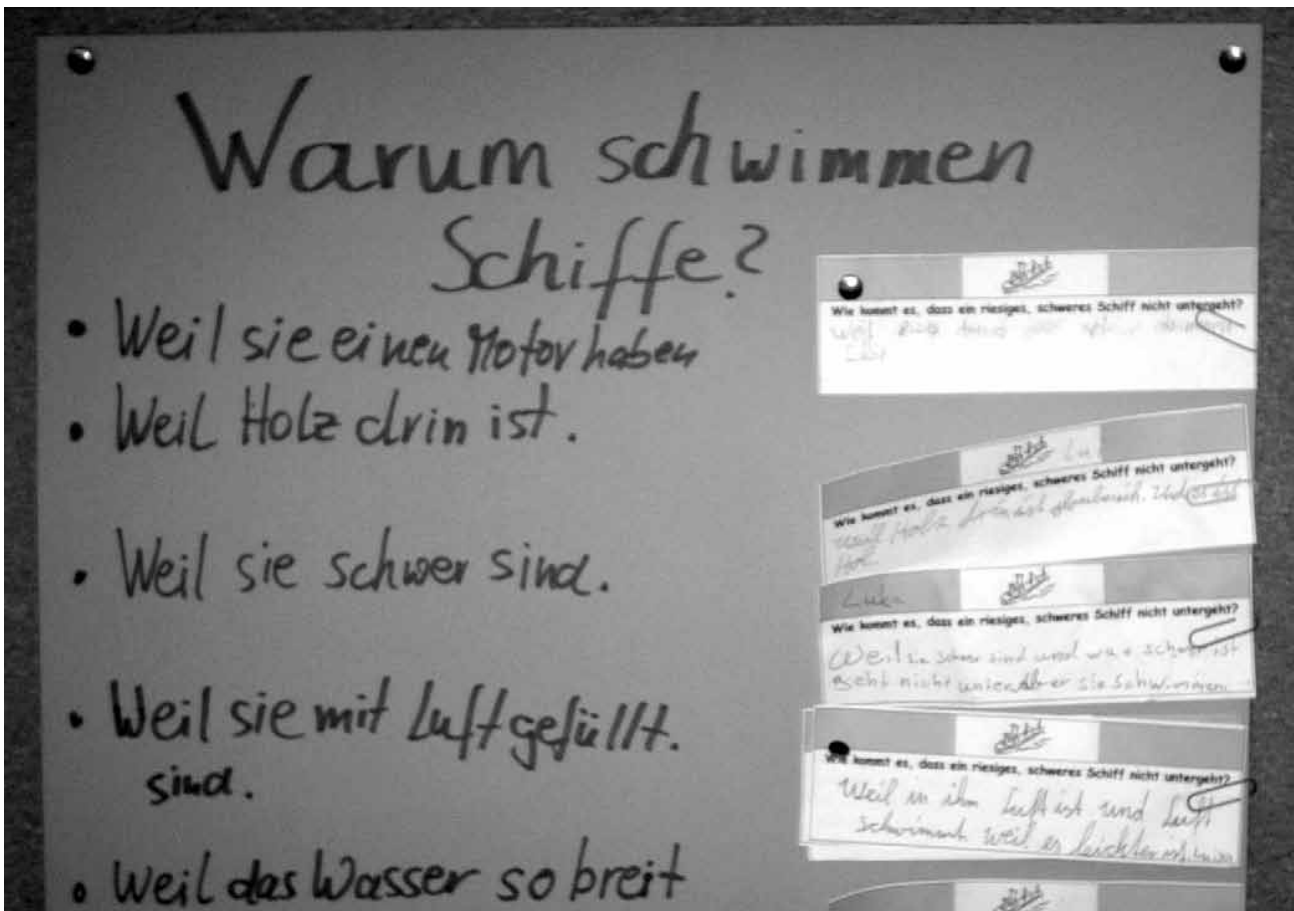 Warum schwimmen
Schiffe?
• Weil sie einen Motor haben
• Weil Holz drin ist.
• Weil sie schwer sind.
• Weil sie mit Luft gefüllt.
sind.
• Weil das Wasser so breit
Wie kommt es, dass ein riesiges, schweres Schiff nicht untergeht?
Weil
Lu
Wie kommt es, dass ein riesiges, schweres Schiff nicht untergeht?
weil Holz drin ist
Hol
Luka
Wie kommt es, dass ein riesiges, schweres Schiff nicht untergeht?
Weil sie schwer sind und was schwer ist
geht nicht unter. Aber sie schwimmen.
Wie kommt es, dass ein riesiges, schweres Schiff nicht untergeht?
Weil in ihm Luft ist und Luft
schwimmt weil es leichter ist